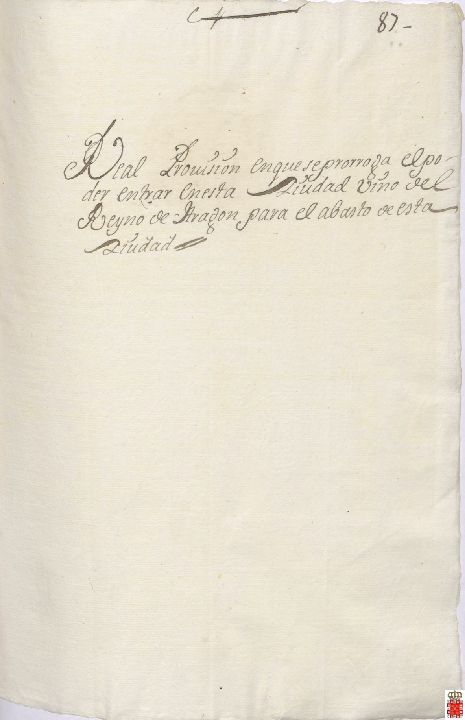 87-
Real Provision enque se prorroga el po-
der entrar en esta Ciudad vino del
Reyno de Aragon para el abasto de esta
Ciudad